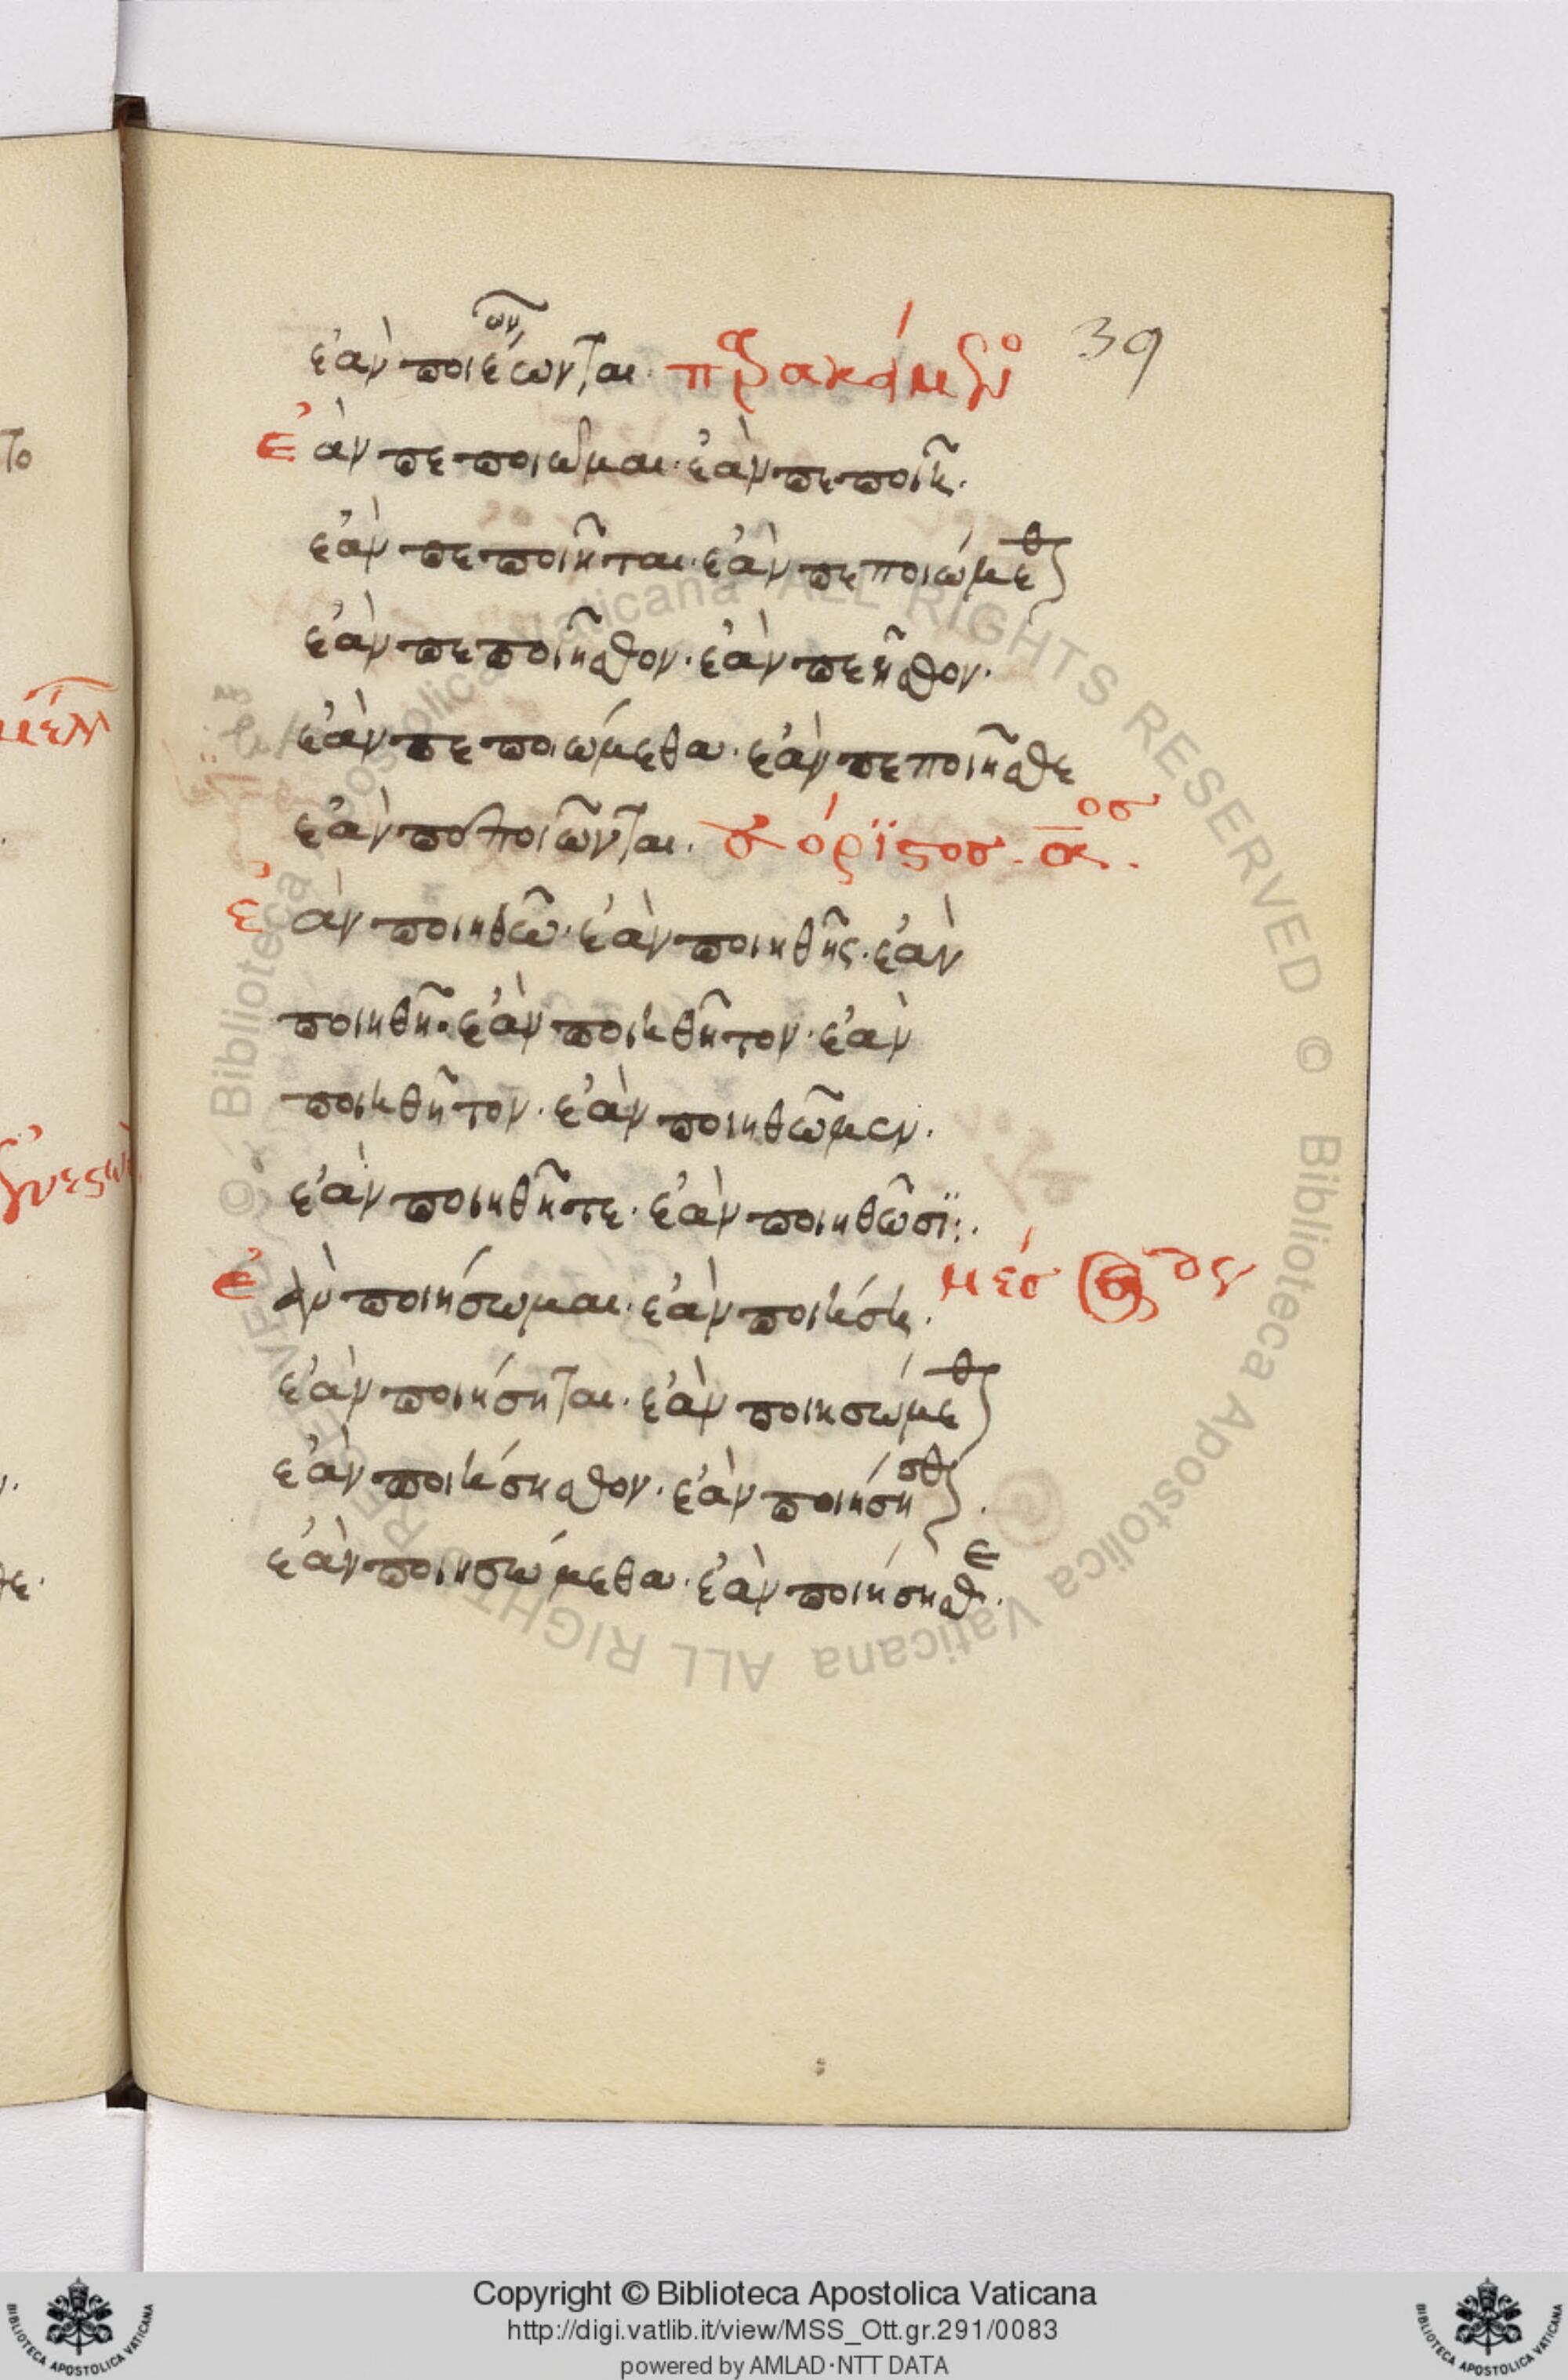 39
ἐὰν ποιέωνται. παρακείμενο
ἐὰν πεποιῶμαι. ἐὰν πεποιῆ.
ἐὰν πεποιῆται. ἐὰν πεποιώμεθ
ἐὰν πεποιῆσθον. ἐὰν πεῆσθον.
ἐὰν πεποιώμεθα. ἐὰν πεποιῆσθε
ἐὰν πεποιῶνται. ἀόρϊστοσ. αοσ.
ἐὰν ποιηθῶ. ἐὰν ποιηθῆς. ἐὰν
ποιηθῆ. ἐὰν ποιηθῆτον. ἐὰν
ποιηθῆτον. ἐὰν ποιηθῶμεν.
ἐὰν ποιηθῆτε. ἐὰν ποιηθῶσϊ:.
ἐὰν ποιήσωμαι. ἐὰν ποιήση. μέσ
ἐὰν ποιήσηται. ἐὰν ποιησώμεθ
ἐὰν ποιήσησθον. ἐὰν ποιήσησθ.
ἐὰν ποιησώμεθα. ἐὰν ποιήσησθε.
Copyright © Biblioteca Apostolica Vaticana
http://digi.vatlib.it/view/MSS_Ott.gr.291/0083
powered by AMLAD·NTT DATA